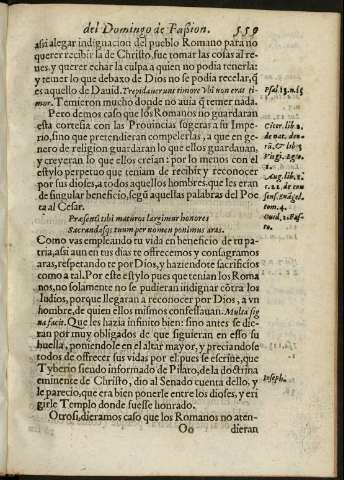 del Domingo de Passion. 559
assi alegar indignacion del pueblo Romano para no
querer recibir la de Christo, fue tomar las cosas al re-
ues, y querer echar la culpa a quien no podia tenerla:
y temer lo que debaxo de Dios no se podia recelar, q̃
es aquello de Dauid. Trepidauerunt timore vbi non erat ti-
mor. Temieron mucho donde no auia q̃ temer nada.
Psal. 13. n. 15
Pero demos caso que los Romanos no guardaran
esta cortesia con las Prouincias sugetas a su Impe-
rio, sino que pretendieran compelerlas, a que en ge-
nero de religion guardaran lo que ellos guardauan,
y creyeran lo que ellos creian: por lo menos con el
estylo perpetuo que tenian de recibir y reconocer
por sus dioses, a todos aquellos hombres, que les eran
de singular beneficio, segũ aquellas palabras del Poe
ta al Cesar.
Cicer. lib. 2.
de nat. deo-
rũ, & lib. 3
Virgi. Egio.
1.
Aug. lib. 1.
c. 22. de con
sens. Euãgel.
tom. 4.
Ouid. 2. Fas-
to.
Præsenti tibi maturos largimur honores
Sacrandasq; tuum per nomen ponimus aras.
Como vas empleando tu vida en beneficio de tu pa-
tria, assi aun en tus dias te offrecemos y consagramos
aras, respetando te por Dios, y haziendote sacrificios
como a tal. Por este estylo pues que tenian los Roma
nos, no solamente no se pudieran indignar cõtra los
Iudios, porque llegaran a reconocer por Dios, a vn
hombre, de quien ellos mismos confessauan. Multa sig
na facit. Que les hazia infinito bien: sino antes se die-
ran por muy obligados de que siguieran en esso su
huella, poniendole en el altar mayor, y preciandose
todos de offrecer sus vidas por el. pues se escriue, que
Tyberio siendo informado de Pilato, de la doctrina
eminente de Christo, dio al Senado cuenta dello, y
le parecio, que era bien ponerle entre los dioses, y eri
girle Templo donde fuesse honrado.
Ioseph.
Otrosi, dieramos caso que los Romanos no aten-
Oo dieran